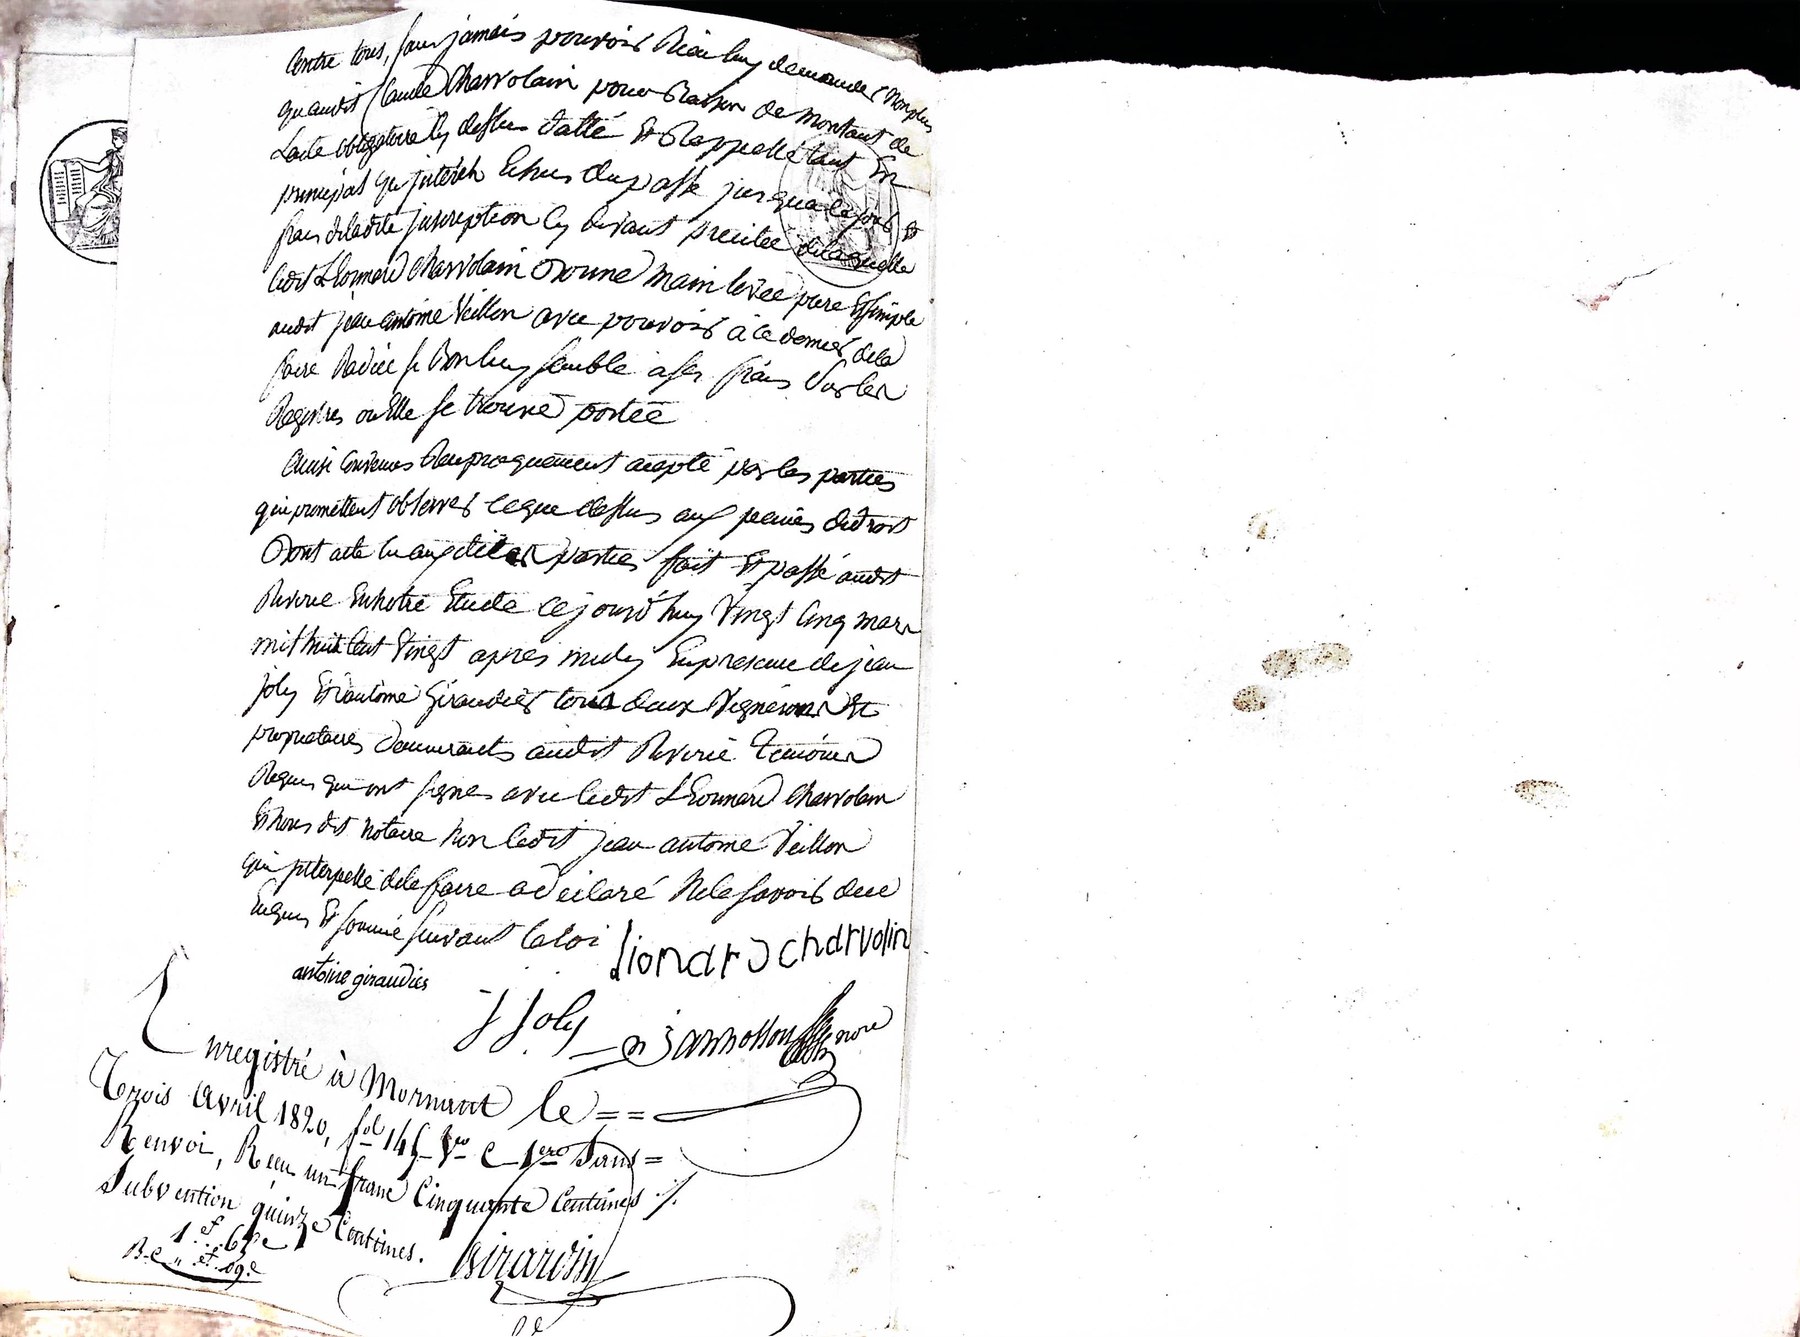 Contre tous, sans jamais pouvoir Rien luy demander Nonplus
quaudit Claude Charvolain pour Raison de montant de
Lacte obligatoire Cy dessus datté Et Rappellé tant En
principal qu jnterêts Echus du passé jusqua ce jour Et
frais deladite jnscription Cy devant precitée delaquelle
ledit Lëonnard Charvolain Donne main levée pure Et simple
audit jean antoine Veillon avec pouvoir à ce dernier dela
faire Radiée si Bon luy semble a ses frais sur les
Registres ou Elle se trouve portée
Ainsi Convenus Reciproquement accepté par les parties
qui promettent observer ceque dessus aux peines dudroit
Dont acte lu auxdites parties fait Et passé audit
Riverie En notre Etude cejourd'huy Vingt Cinq mars
mil huit Cent Vingt apres midy En presence de jean
joly Et antoine Giraudier tous deux Vignerons Et
proprietaires demeurants audit Riverie Temoins
Requis qui ont signes avec ledit Lëonnard Charvolain
Et Nous dit Notaire Non ledit jean antoine Veillon
qui jnterpellé dele faire a declaré Nele savoir de ce
Enquis Et sommé suivant la loi
liondrd chdrvolin
antoine giraudier
J Joly
Enregistré à Mornant le ==
Trois Avril 1820, f.º 145 V.º C 1.ere Sans =
Renvoi, Reçu un franc Cinquante Centimes ./.
Subvention quinze Centimes.
1.f. 65.c
Girardin